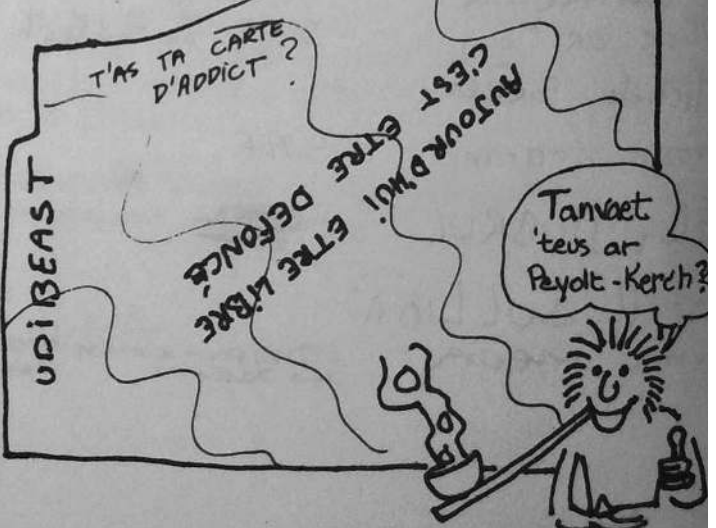 T'AS TA CARTE
D'ADDICT ?
UDIBEAST
AUJOURD'HUI ETRE LIBRE
C'EST ETRE DEFONCÉ
Tanvaet
'teus ar
Peyolt-Kerch?